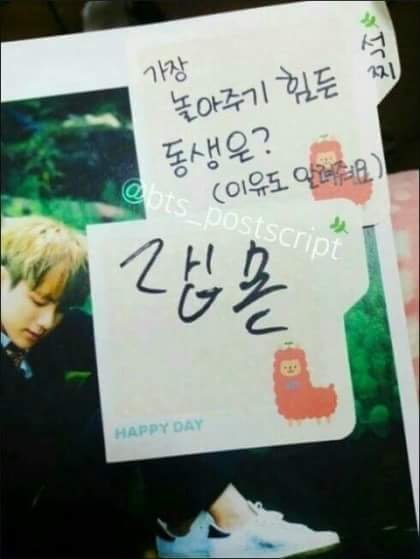 석찌
가장
놀아주기 힘든
동생은?
(이유도 알려줘요)
@bts_postscript
랩몬
HAPPY DAY